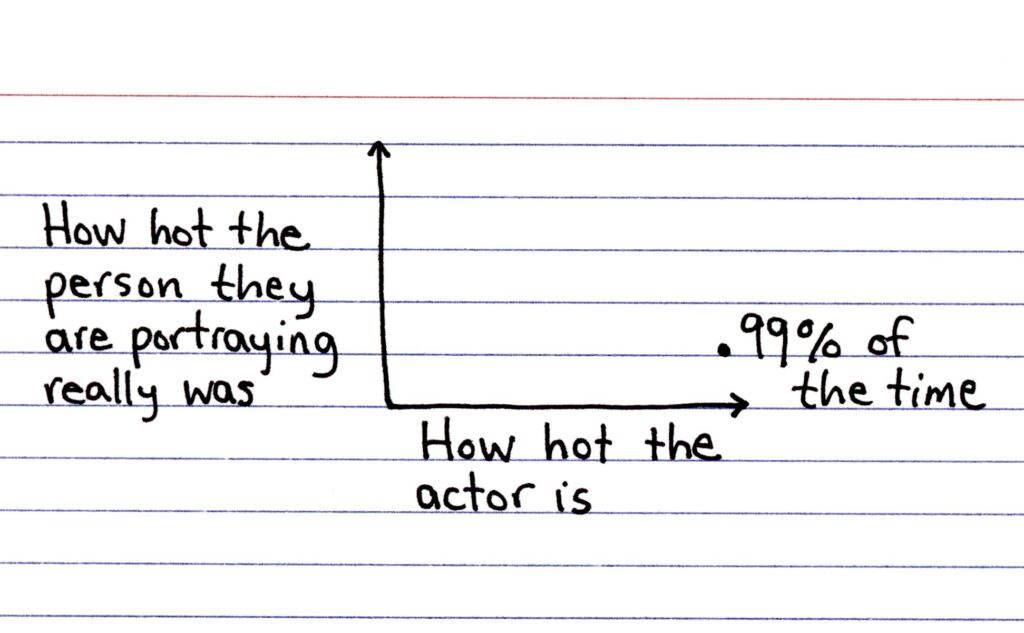 How hot the
person they
are portraying
really was
99% of
the time
How hot the
actor is